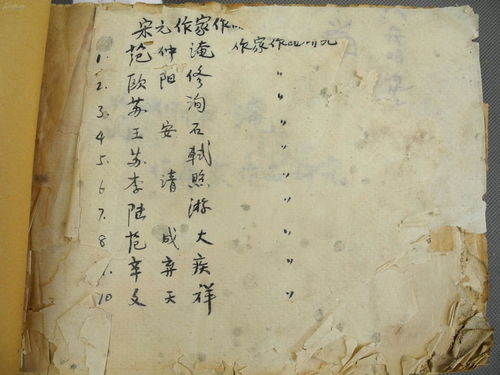 宋元作家作
1. 范仲淹 作家作品研究
2. 欧阳修 〃
3. 苏洵 〃
4 王安石 〃
5. 苏轼 〃
6 李清照 〃
7. 陆游 〃
8 范成大 〃
9. 辛弃疾 〃
10 文天祥 〃